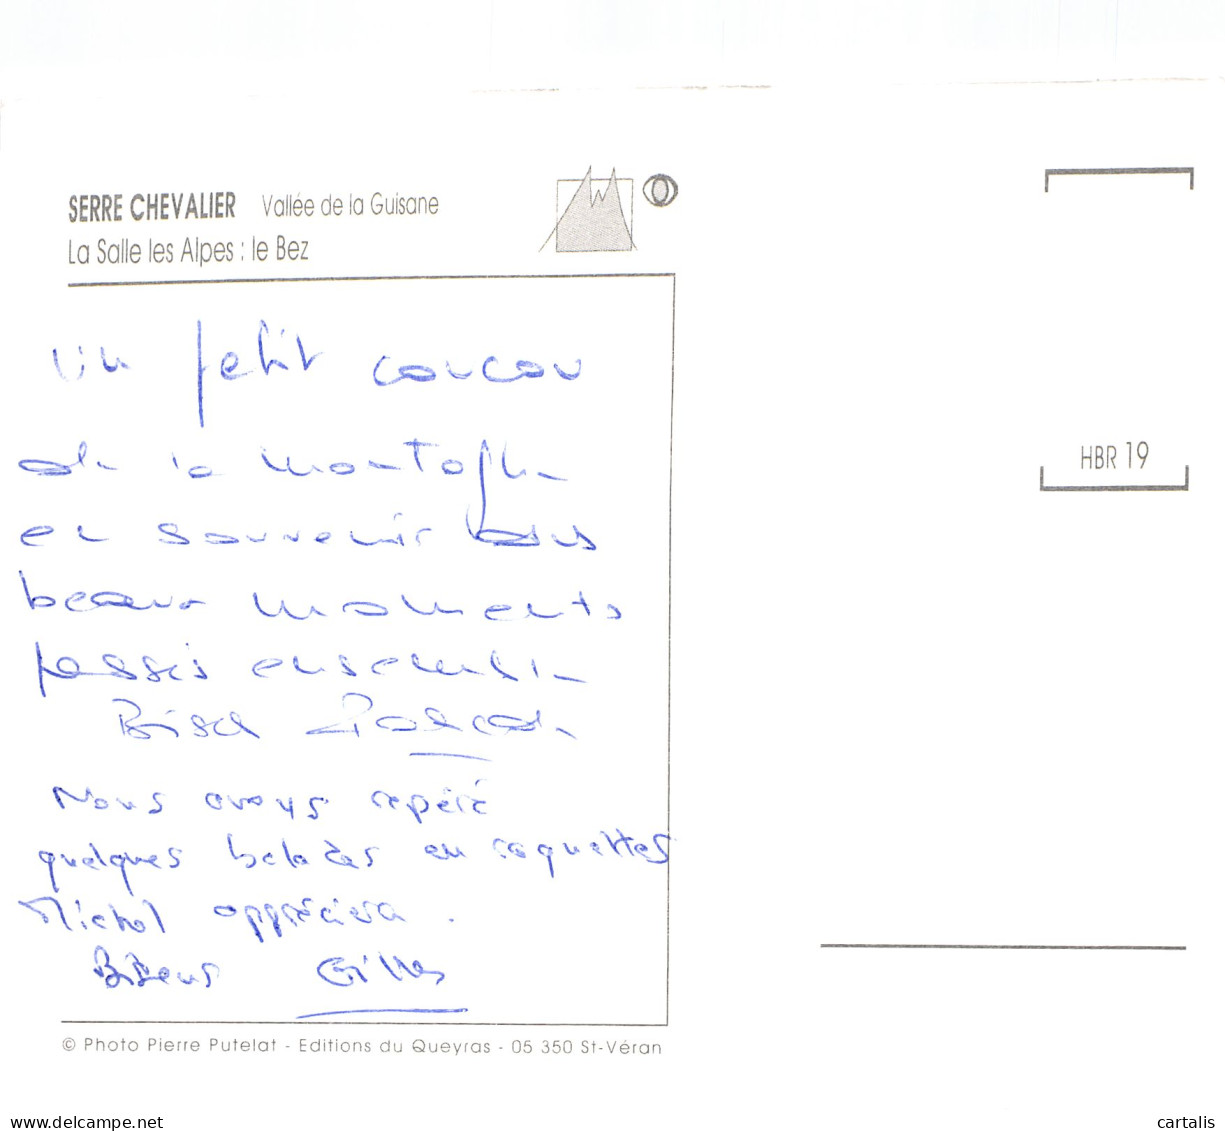 SERRE CHEVALIER Vallée de la Guisane
La Salle les Alpes : le Bez
Un petit coucou
de la montagne
en souvenir des
beaux moments
passés ensemble
Bises Pascale
Nous avons repéré
quelques balades en raquettes
Michel appréciera.
Bisous Gilles
© Photo Pierre Putelat - Editions du Queyras - 05 350 St-Véran
HBR 19
www.delcampe.net
cartalis